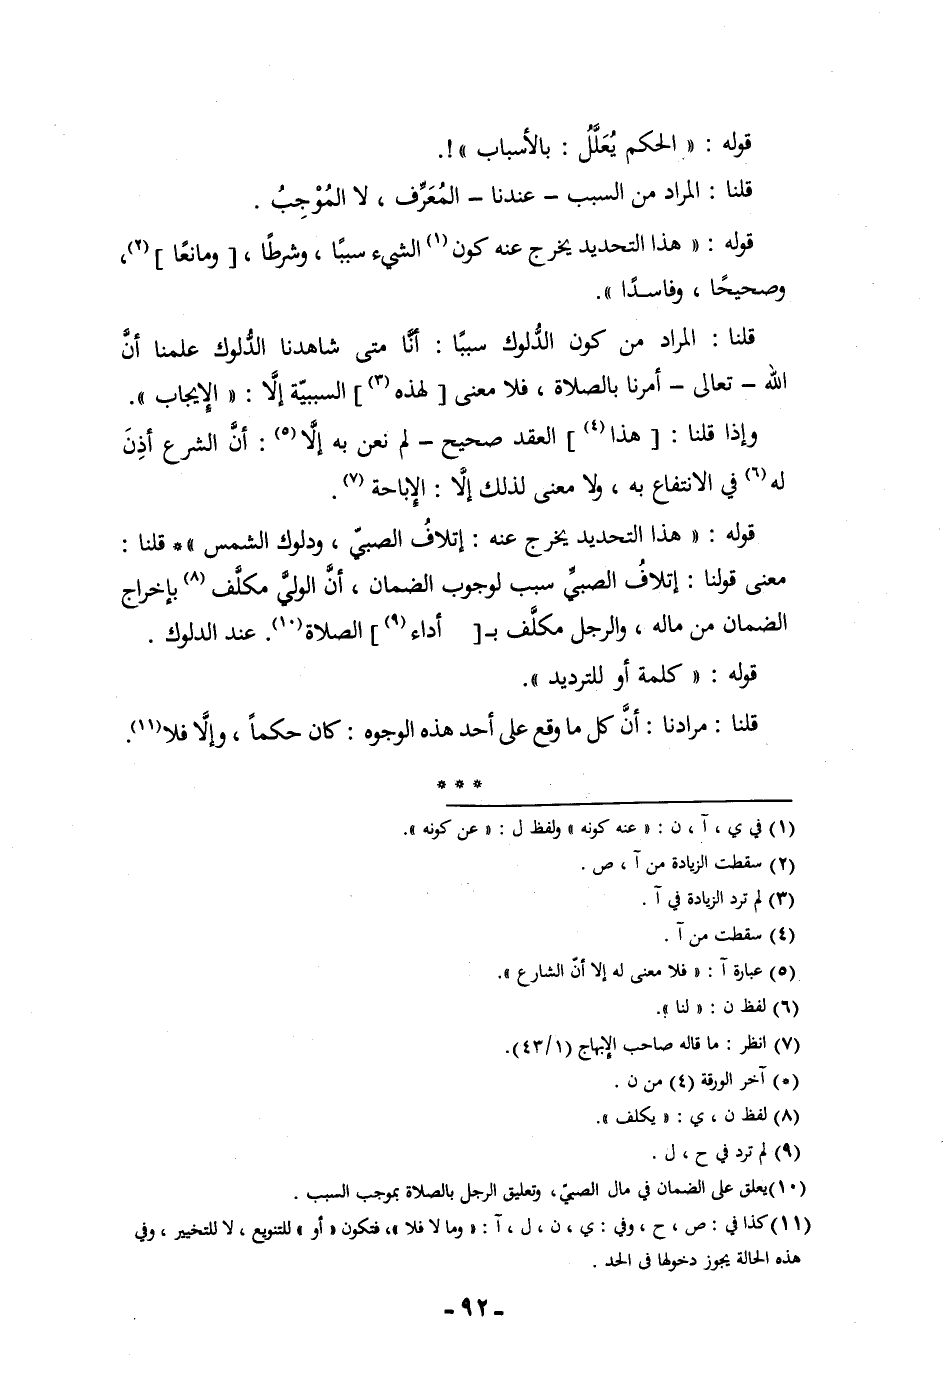 قوله : « الحكم يُعَلَّلُ : بالأسباب »!.
قلنا : المراد من السبب – عندنا – المُعَرِّف ، لا المُوْجِبُ .
قوله : « هذا التحديد يخرج عنه كون(١) الشيء سببًا ، وشرطًا ، [ ومانعًا ](٢)،
وصحيحًا ، وفاسدًا ».
قلنا : المراد من كون الدُّلوك سببًا : أنَّا متى شاهدنا الدُّلوك علمنا أنَّ
الله – تعالى – أمرنا بالصلاة ، فلا معنى [ لهذه(٣) ] السببيّة إلَّا : « الإيجاب ».
وإذا قلنا : [ هذا(٤) ] العقد صحيح – لم نعن به إلَّا(٥) : أنَّ الشرع أذِنَ
له(٦) في الانتفاع به ، ولا معنى لذلك إلَّا : الإباحة(٧) .
قوله : « هذا التحديد يخرج عنه : إتلافُ الصبيّ ، ودلوك الشمس »* قلنا :
معنى قولنا : إتلافُ الصبيِّ سبب لوجوب الضمان ، أنَّ الوليَّ مكلَّف(٨) بإخراج
الضمان من ماله ، والرجل مكلَّف بـ[ أداء(٩) ] الصلاة(١٠). عند الدلوك .
قوله : « كلمة أو للترديد ».
قلنا : مرادنا : أنَّ كل ما وقع على أحد هذه الوجوه : كان حكماً ، وإلَّا فلا(١١).
* * *
(١) في ي ، آ ، ن : « عنه كونه » ولفظ ل : « عن كونه ».
(٢) سقطت الزيادة من آ ، ص .
(٣) لم ترد الزيادة في آ .
(٤) سقطت من آ .
(٥) عبارة آ : « فلا معنى له إلا أنّ الشارع ».
(٦) لفظ ن : « لنا ».
(٧) انظر : ما قاله صاحب الإبهاج (٤٣/١).
(٥) آخر الورقة (٤) من ن .
(٨) لفظ ن ، ي : « يكلف ».
(٩) لم ترد في ح ، ل .
(١٠)يعلق على الضمان في مال الصبيّ، وتعليق الرجل بالصلاة بموجب السبب .
(١١)كذا في : ص ، ح ، وفي : ي ، ن ، ل ، آ : « وما لا فلا »، فتكون « أو » للتنويع ، لا للتخيير ، وفي
هذه الحالة يجوز دخولها في الحد .
- ٩٢ -